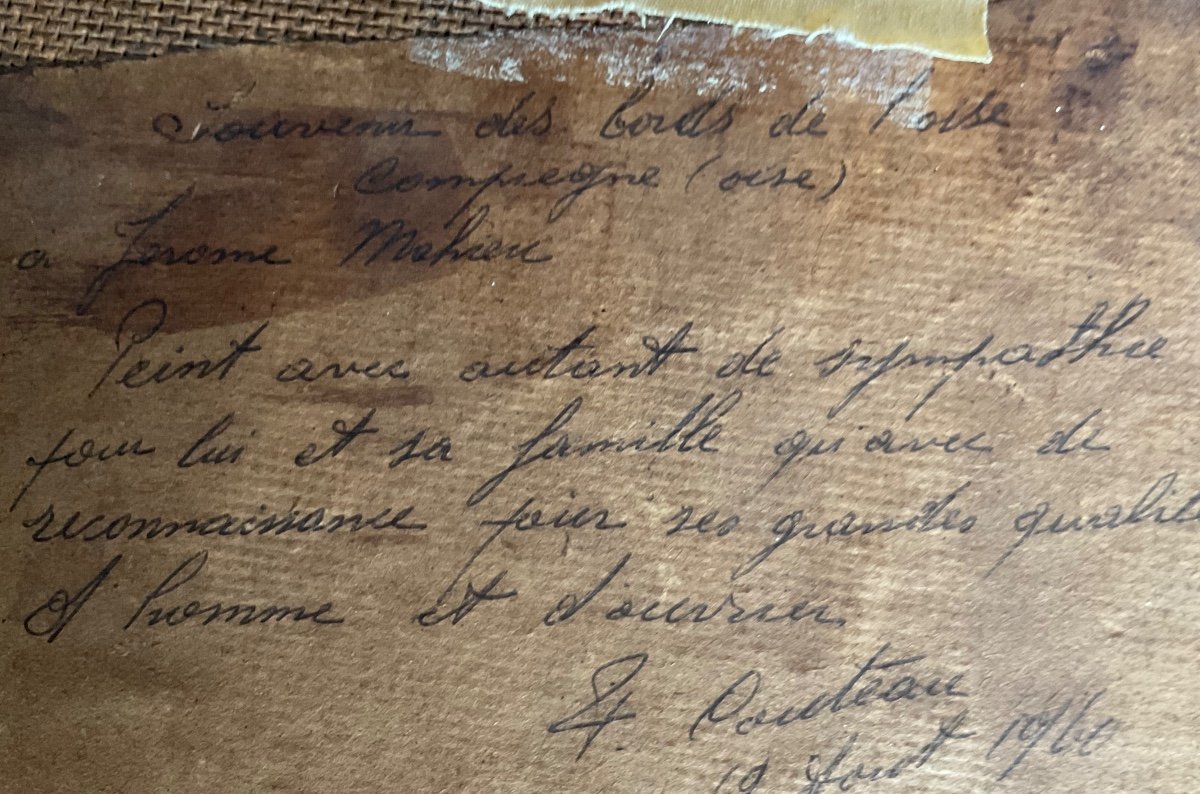 Souvenir des bords de l'oise
Compiegne (oise)
a Jerome Mahieu
Peint avec autant de sympathie
pour lui et sa famille qu'avec de
reconnaissance pour ses grandes qualité
d'homme et d'ouvrier.
Couteau
Aout